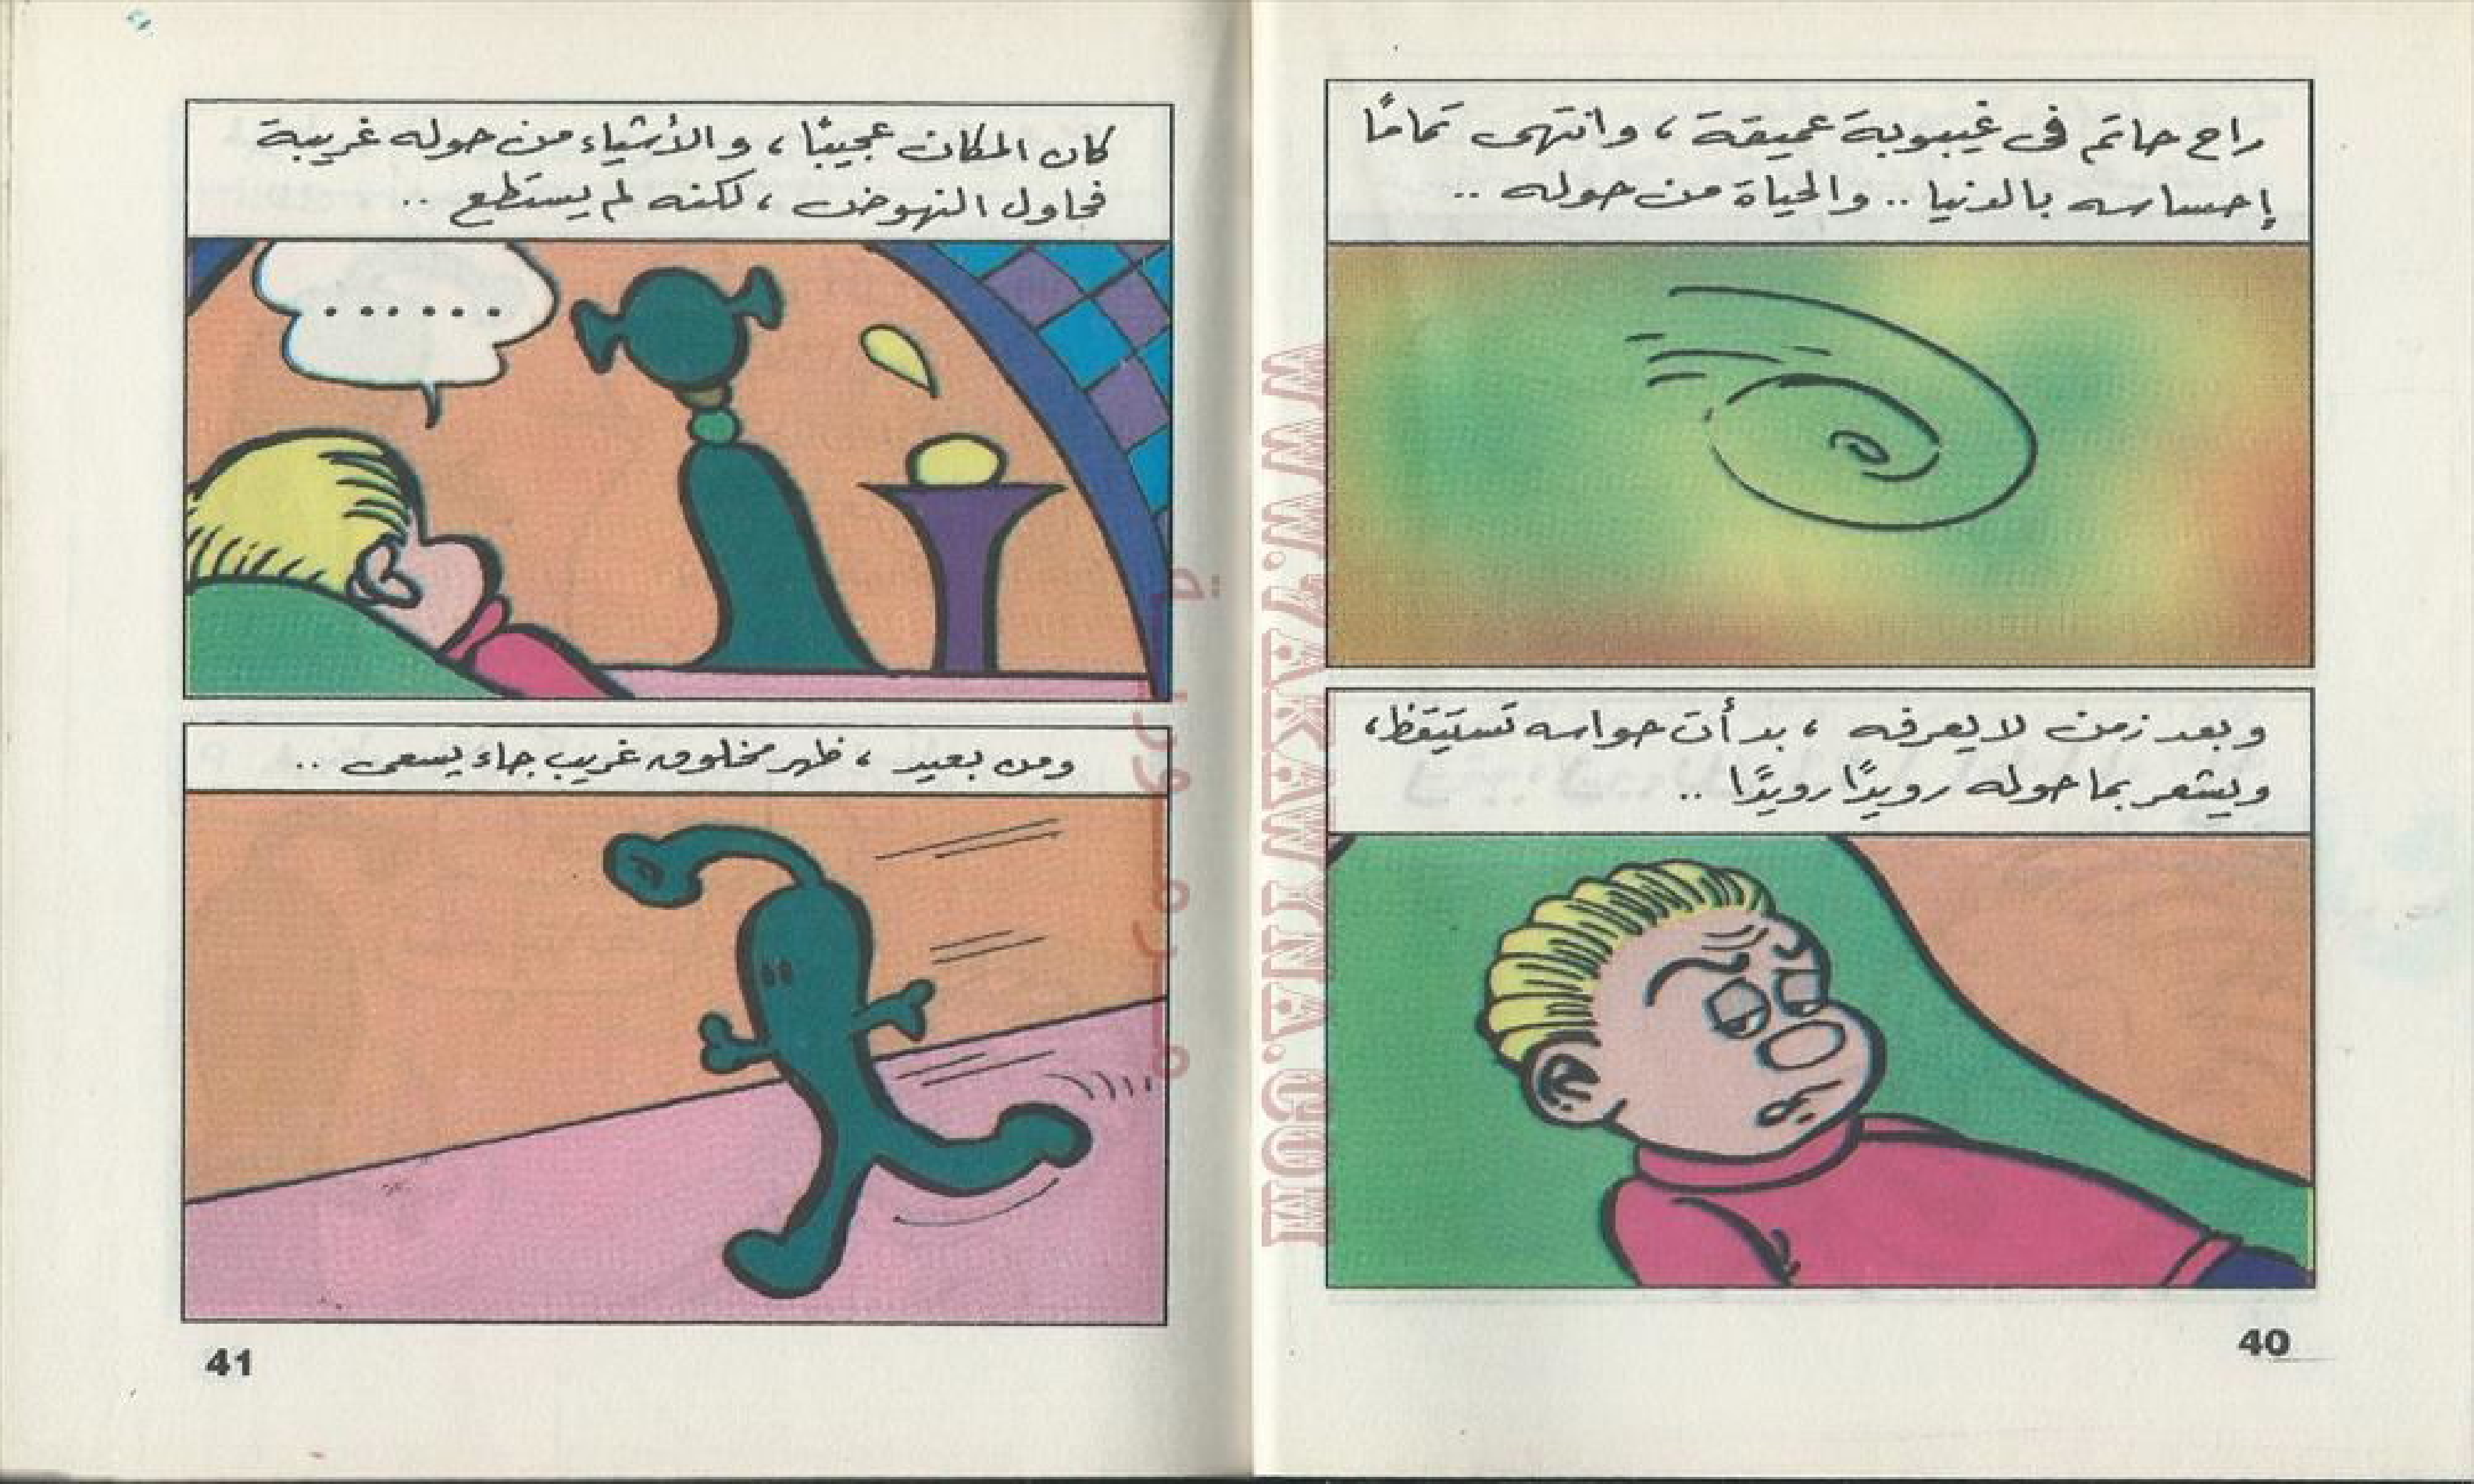 راح حاتم فى غيبوبة عميقة ، وانتهى تمامًا
إحساسه بالدنيا .. والحياة من حوله ..
وبعد زمن لا يعرفه ، بدأت حواسه تستيقظ ،
ويشعر بما حوله رويدًا رويدًا ..
40
كان المكان عجيبًا ، والأشياء من حوله غريبة
فحاول النهوض ، لكنه لم يستطع ..
......
ومن بعيد ، ظهر مخلوق غريب جاء يسعى ..
41
WWW.ARABCOMICS